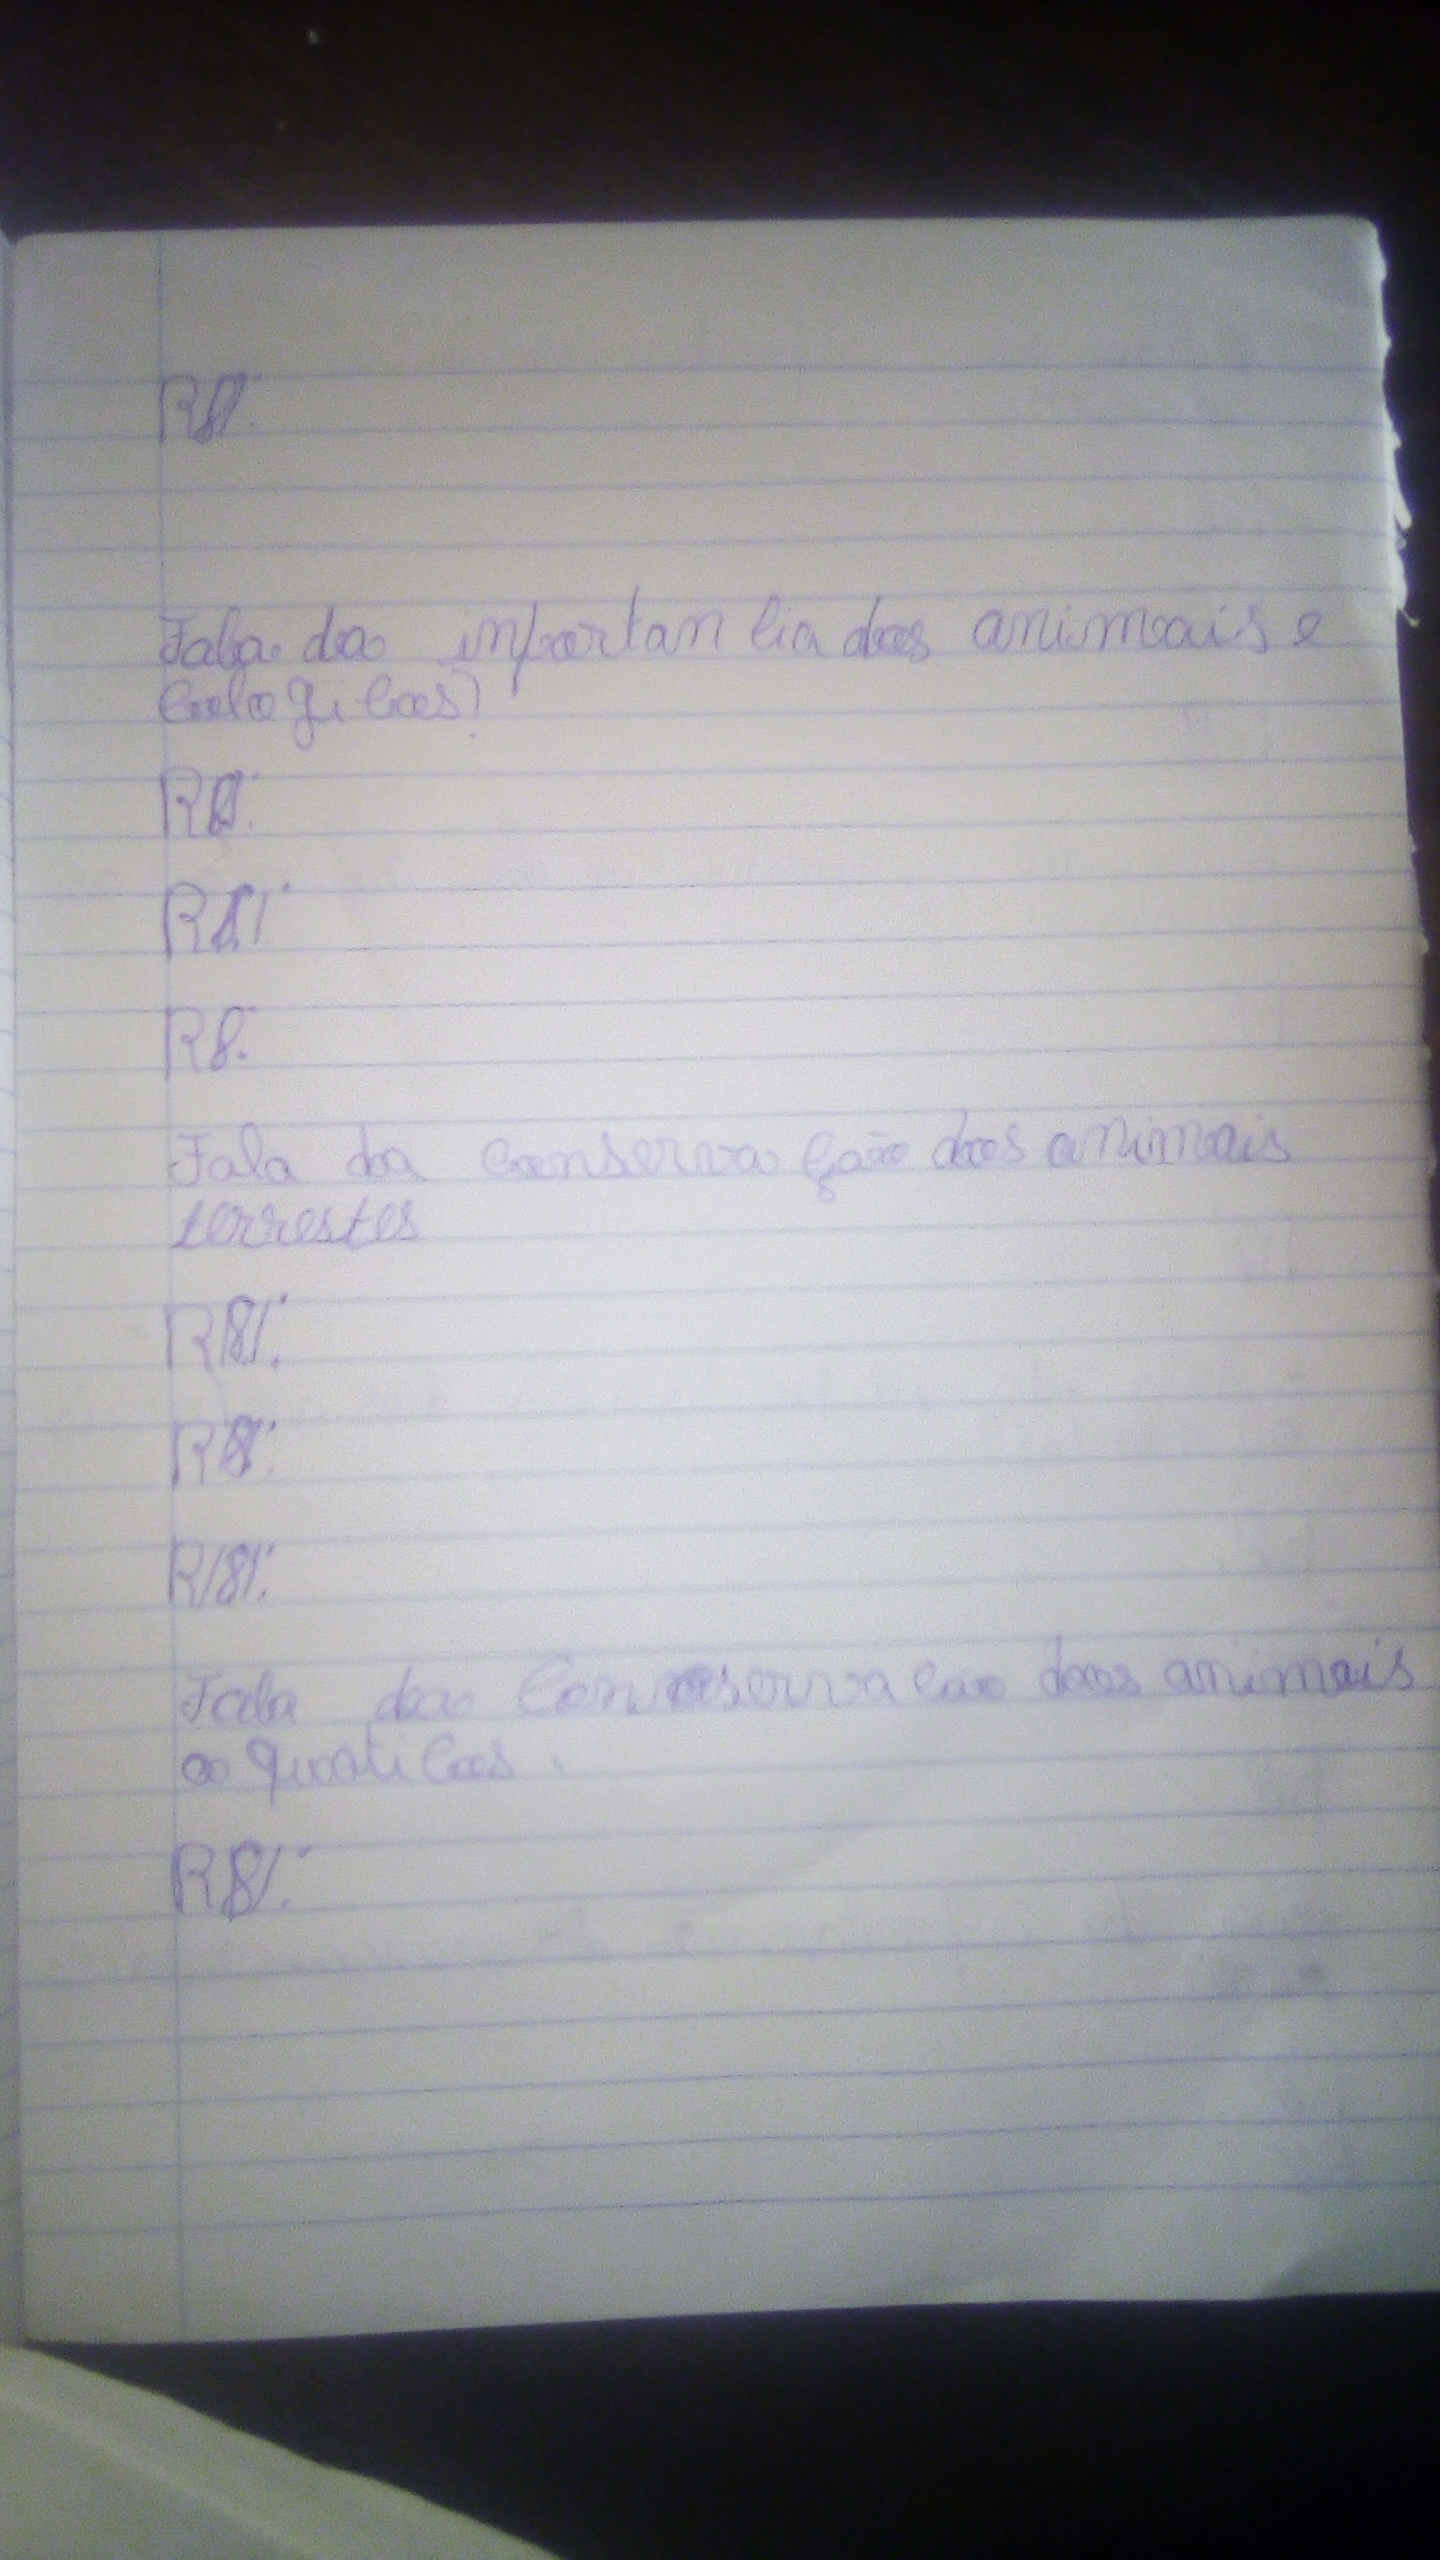 R//:
Fala da inportancia dos animais e
cologicos?
R//:
R//:
R/:
Fala da conservação dos animais
terrestes
R//:
R//:
R//:
Fala da conservacão dos animais
aquaticos.
R//: